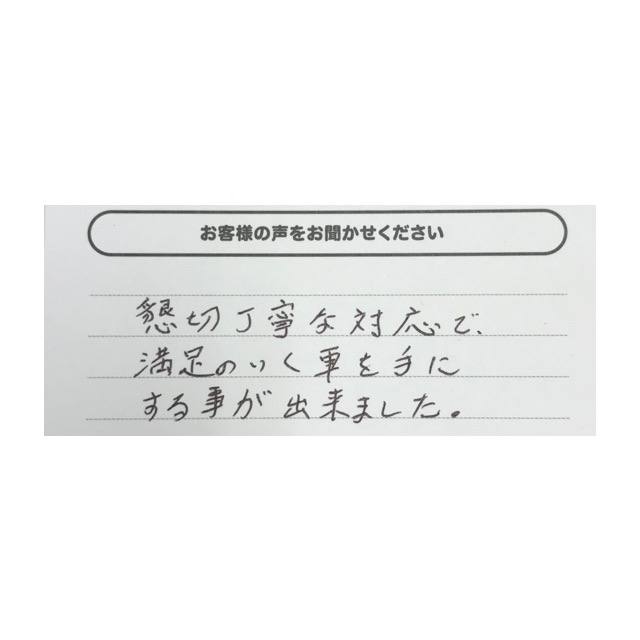 お客様の声をお聞かせください
懇切丁寧な対応で、
満足のいく車を手に
する事が出来ました。